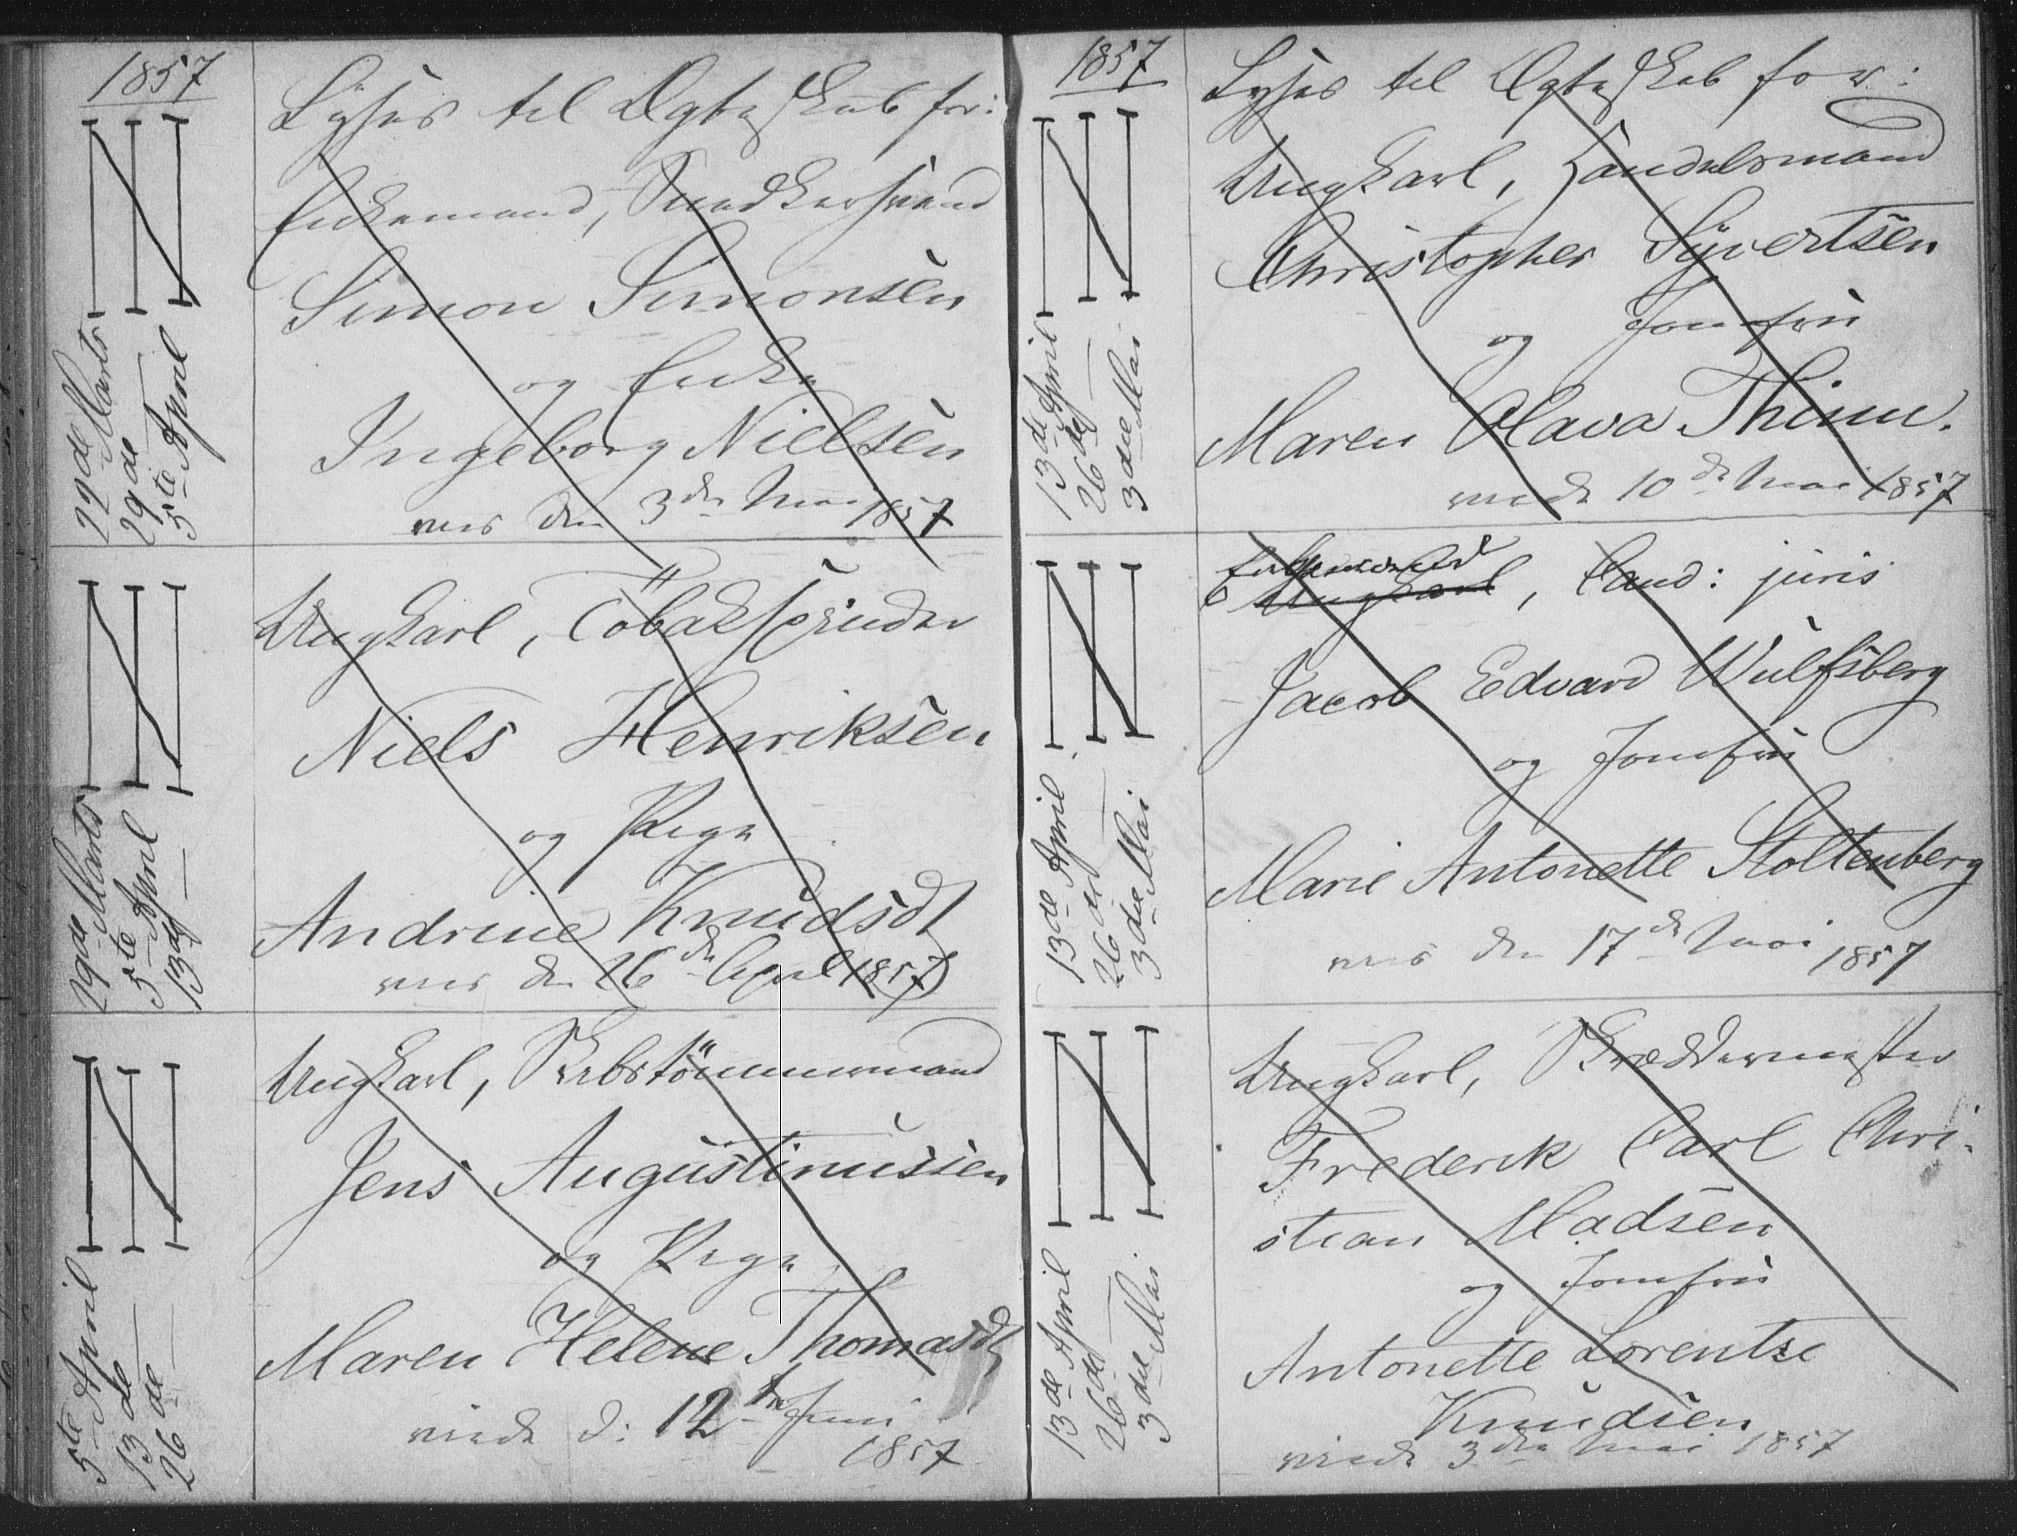 1857
Lyses til Ægteskab for:
22de Marts
29de —
5te April
Enkemand, Snedkersvend
Simon Simonsen
og Enke
Ingeborg Nielsen
viet den 3die Mai 1857
29de Marts
5te April
13de —
Ungkarl, Tobakspinder
Niels Henriksen
og Pige
Andrine Knudsdt
viet den 26de April 1857
5te April
13de —
26de —
Ungkarl, Skibstömmermand
Jens Augustinussen
og Pige
Maren Helene Thomasdt
viede d: 12te Juni
1857
1857
Lyses til Ægteskab for:
13de April
26de —
3die Mai.
Ungkarl, Handelsmand
Christopher Syvertsen
og Jomfru
Maren Olava Thinn.
viede 10de Mai 1857
13de April
26de —
3die Mai
Enkemand
Ungkarl, Cand: juris
Jacob Edvard Wulfsberg
og Jomfru
Marie Antonette Stoltenberg
viet den 17de Mai 1857
13de April
26de —
3die Mai.
Ungkarl, Skræddermester
Frederik Carl Chri-
stian Madsen
og Jomfru
Antonette Lorentze
Knudsen
viede 3die Mai 1857